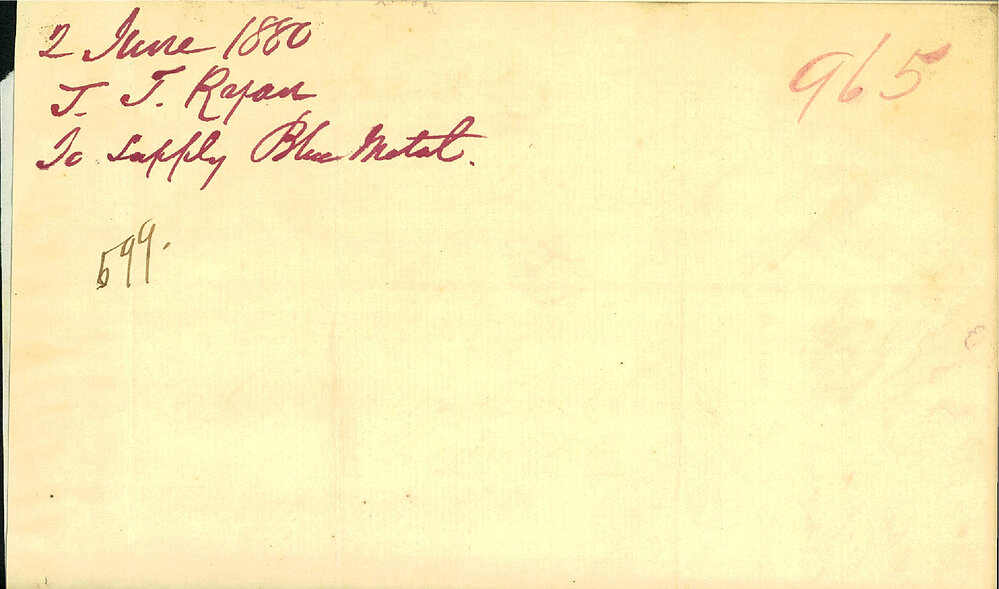 2 June 1880
J. T. Ryan
To supply Blue Metal.
965
599.